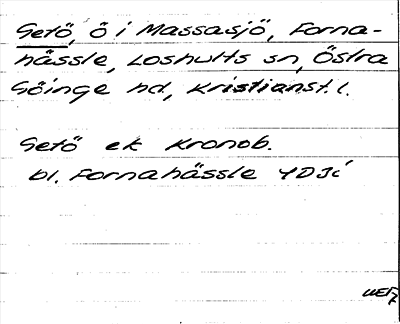 Getö, ö i Massasjö, Forna-
hässle, Loshults sn, Östra
Göinge hd, Kristianst. l.
Getö ek Kronob.
bl. Fornahässle 4D3i